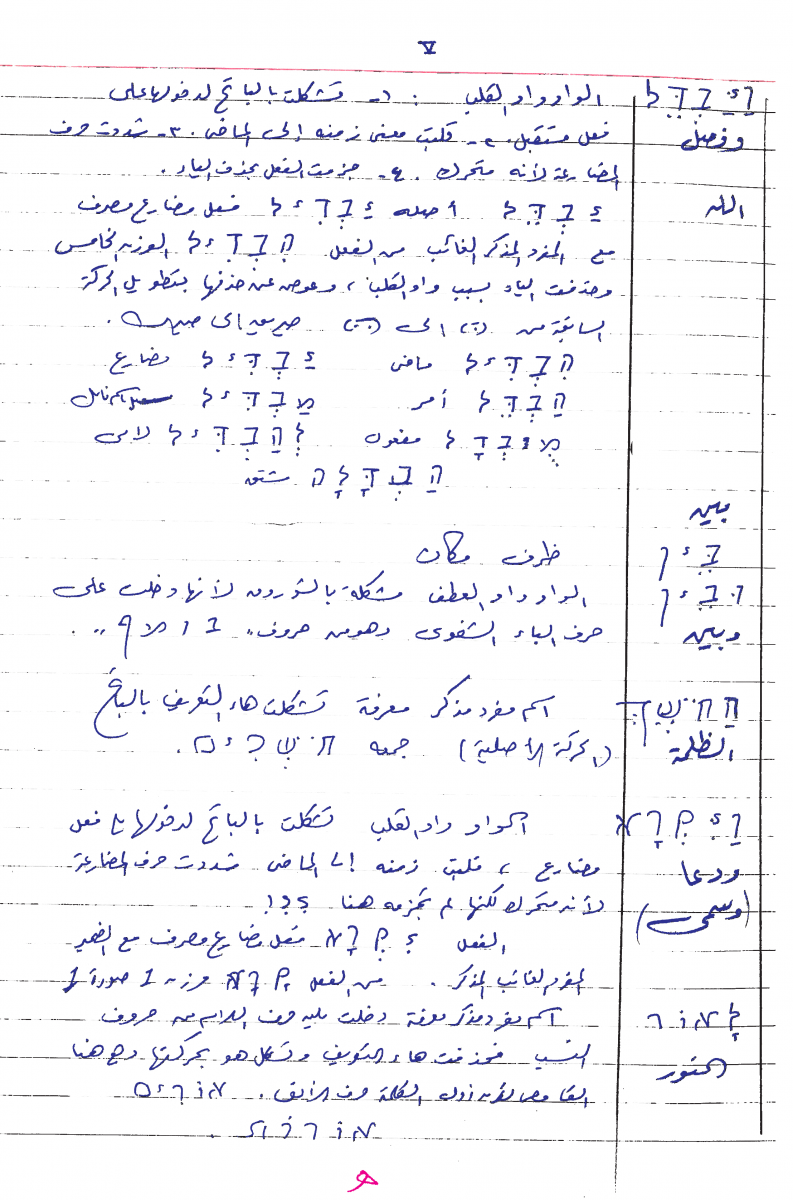 ٧
וַיַּבְדֵּל الواو واو القلب : ١- تشكلت بالباتح لدخولها على
وفصل فعل مستقبل. ٢- قلبت معنى زمنه إلى الماضى. ٣- شددت حرف
المضارعة لأنه متحرك. ٤- جزمت الفعل بحذف الياء.
الله יַבְדֵּל أصله יַבְדִּיל فعل مضارع مصرف
مع المفرد المذكر الغائب من الفعل הִבְדִּיל الوزن الخامس
وحذفت الياء بسبب واو القلب، وعوض عن حذفها بتطويل الحركة
السابقة من (ִ) الى (ֵ) حيريق الى صيريه.
הִבְדִּיל ماضى יַבְדִּיל مضارع
הַבְדֵּל أمر מַבְדִּיל اسم فاعل
מֻובְדָּל مفعول לְהַבְדִּיל لامى
הַבְדָּלָה مشتق
بين
בֵּין ظرف مكان
וּבֵין الواو واو العطف مشكلة بالشوروق لأنها دخلت على
وبين حرف الباء الشفوى وهو من حروف " ב ו מ פ ".
הַחֹשֶׁךְ اسم مفرد مذكر معرفة تشكلت هاء التعريف بالباتح
الظلمة (الحركة الأصلية) جمعه חֲשֵׁכִים.
וַיִּקְרָא الواو واو القلب تشكلت بالباتح لدخولها على فعل
ودعا مضارع، قلبت زمنه إلى الماضى شددت حرف المضارعة
(وسمى) لأنه متحرك لكنها لم تجزمه هنا ؟؟!
الفعل יִקְרָא فعل مضارع مصرف مع الضمير
المفرد الغائب المذكر. من الفعل קָרָא وزن 1 صورة 1
לָאוֹר اسم مفرد مذكر معرفة دخلت عليه حرف اللام من حروف
النسب فحذفت هاء التعريف وتشكل هو بحركتها وهى هنا
النور القامص لأن أول الكلمة حرف الألف. אוֹרִים
אוֹרוֹת.